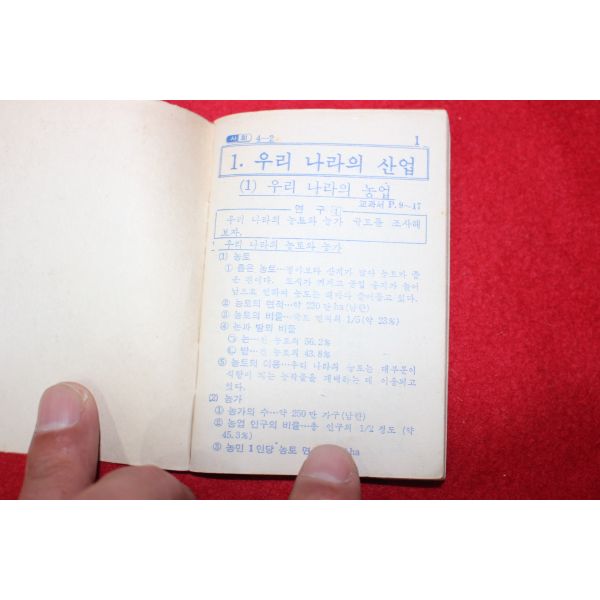 사회 4-2
1
1. 우리 나라의 산업
(1) 우리 나라의 농업
교과서 P. 9~17
연 구 1
우리 나라의 농토와 농가 수도를 조사해
보자.
1 우리 나라의 농토와 농가
(1) 농토
① 좁은 농토…평야보다 산지가 많아 농토가 좁
은 편이다. 도시가 커지고 공업 용지가 늘어
남으로 인하여 농토는 해마다 줄어들고 있다.
② 농토의 면적…약 230만 ha(남한)
③ 농토의 비율…국토 면적의 1/5(약 23%)
④ 논과 밭의 비율
㉠ 논…전 농토의 56.2%
㉡ 밭…전 농토의 43.8%
⑤ 농토의 이용…우리 나라의 농토는 대부분이
식량이 되는 농작물을 재배하는 데 이용되고
있다.
(2) 농가
① 농가의 수…약 250만 가구(남한)
② 농업 인구의 비율…총 인구의 1/2 정도 (약
45.3%)
③ 농민 1인당 농토 면 ha